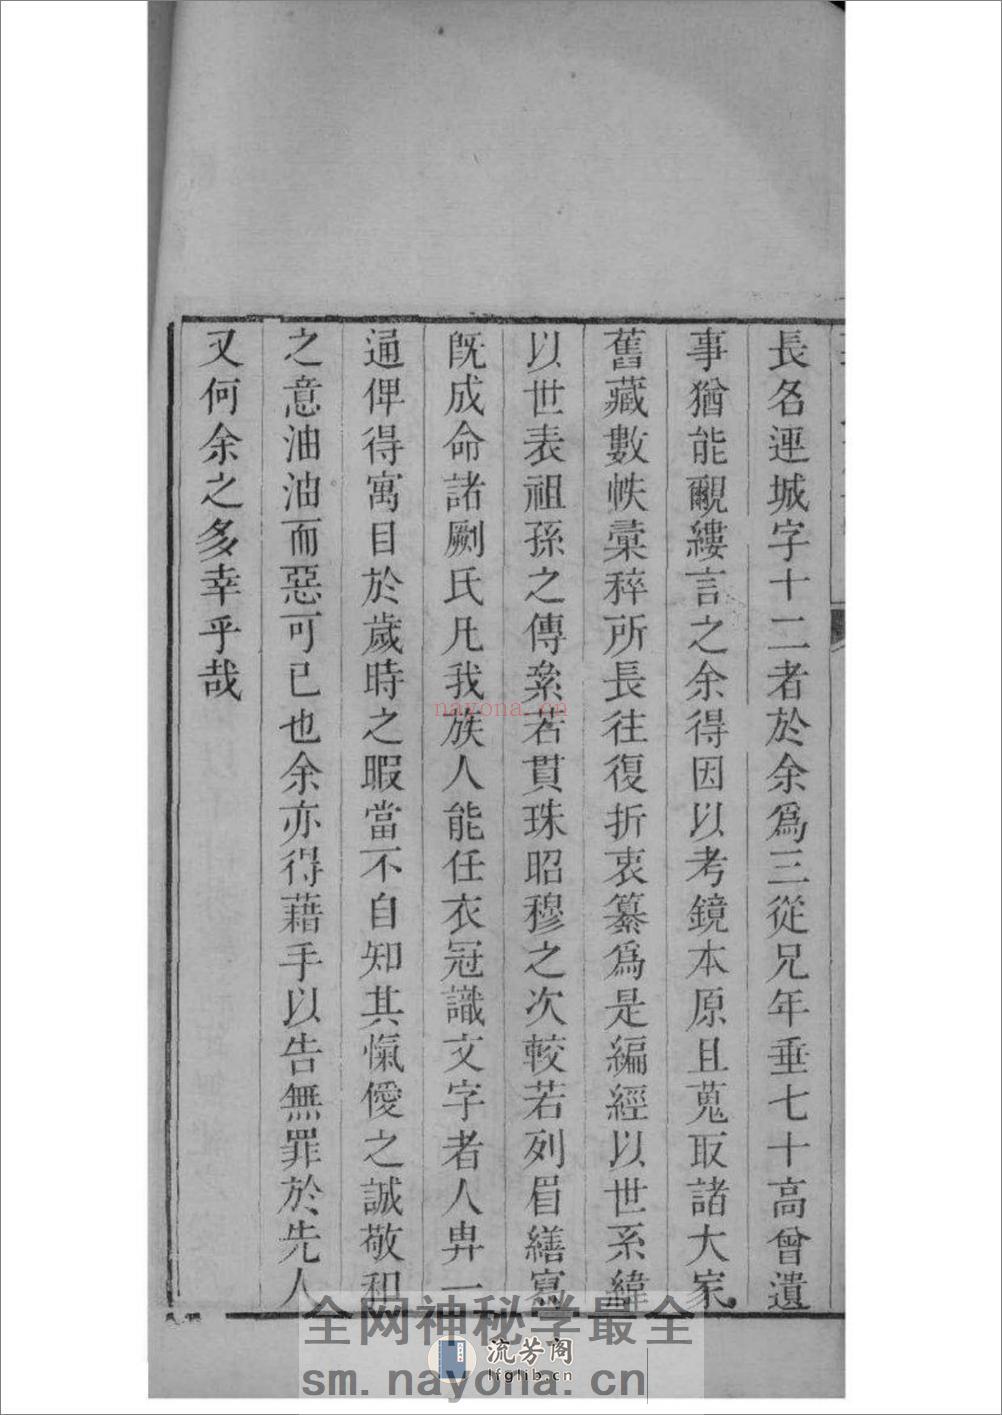 長名逕城字十二者於余爲三從兄年垂七十高曾遺
事猶能覼縷言之余得因以考鏡本原且蒐取諸大家
舊藏數帙彙稡所長往復折衷纂爲是編經以世系緯
以世表祖孫之傳絫若貫珠昭穆之次較若列眉繕寫
旣成命諸劂氏凡我族人能任衣冠識文字者人畀一
通俾得寓目於歲時之暇當不自知其愾僾之誠敬和
之意油油而惡可已也余亦得藉手以告無罪於先人
又何余之多幸乎哉
nayona.cn
全网神秘学最全
流芳阁
lfglib.cn
sm.nayona.cn